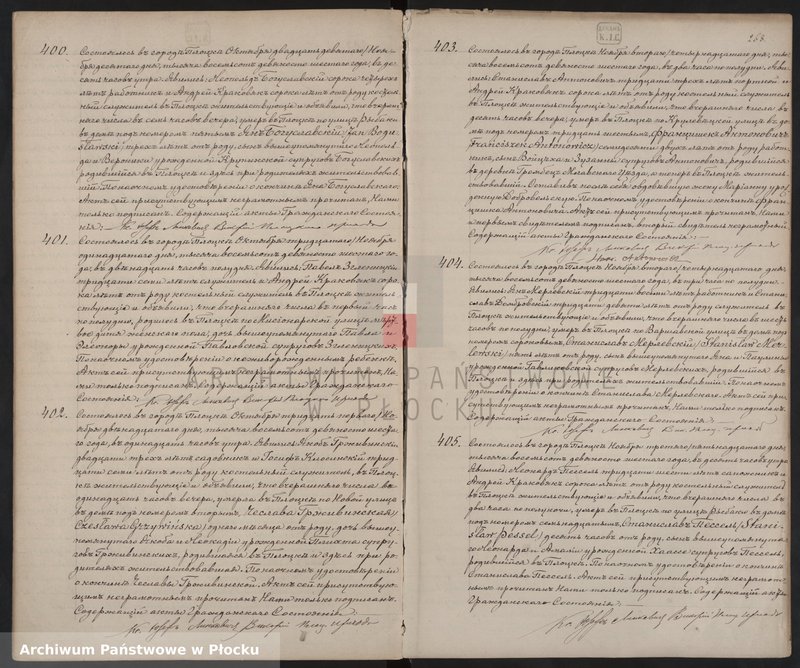 400.
Состоялось въ городѣ Плоцкѣ Октября двадцать девятаго/Ноя-
бря десятаго дня, тысяча восемьсотъ девяносто шестаго года, въ де-
сять часовъ утра. Явились: Леопольдъ Богуславскій сорока четырехъ
лѣтъ работникъ и Андрей Краковякъ сорока лѣтъ отъ роду костель-
ный служитель въ Плоцкѣ жительствующіе и объявили, что вчераш-
няго числа въ семь часовъ вечера, умеръ въ Плоцкѣ по улицѣ Рыбаки
въ домѣ подъ номеромъ пятымъ Янъ Богуславскій (Jan Bogu-
sławski) трехъ лѣтъ отъ роду, сынъ вышеупомянутаго Леополь-
да и Вероники урожденной супруговъ Богуславскихъ
родившійся въ Плоцкѣ и здѣсь при родителяхъ жительствовав-
шій. По наочномъ удостовѣреніи о кончинѣ Яна Богуславскаго.
Актъ сей присутствующимъ неграмотнымъ прочитанъ, Нами
только подписанъ. Содержащій акты Гражданскаго Состоя-
нія:
401.
Состоялось въ городѣ Плоцкѣ Октября тридцатаго/Ноября
одиннадцатаго дня, тысяча восемьсотъ девяносто шестаго го-
да, въ двѣнадцать часовъ полудня. Явились: Павелъ Зеленецкій
тридцати семи лѣтъ служитель и Андрей Краковякъ соро-
ка лѣтъ отъ роду костельный служитель въ Плоцкѣ житель-
ствующіе и объявили, что вчерашняго числа въ первый часъ
по полудню, родилось въ Плоцкѣ по Мисіонарской улицѣ мерт-
вою дитя женскаго пола, дочь вышеупомянутаго Павла и
урожденной Павловской супруговъ Зеленецкихъ
По наочномъ удостовѣреніи о неживорожденномъ ребенкѣ,
Актъ сей присутствующимъ неграмотнымъ прочитанъ, На-
ми только подписанъ. Содержащій акты Гражданскаго
Состоянія:
402.
Состоялось въ городѣ Плоцкѣ Октября тридцать перваго/Но-
ября двѣнадцатаго дня, тысяча восемьсотъ девяносто шеста-
го года, въ одинадцать часовъ утра. Явились Яковъ Гржи­винскій
двадцати трехъ лѣтъ садовникъ и Іосифъ трид-
цати семи лѣтъ отъ роду костельный служитель, въ Плоц-
кѣ жительствующіе и объявили, что вчерашняго числа въ
одинадцать часовъ вечера, умерла въ Плоцкѣ по Новой улицѣ
въ домѣ подъ номеромъ вторымъ, Чеслава Грживинская
(Czesława Grzywińska) одного мѣсяца отъ роду, дочь вышеу-
помянутаго Якова и Леокадіи урожденной супру-
говъ Грживинскихъ, родившаяся въ Плоцкѣ и здѣсь при ро-
дителяхъ жительствовавшая. По наочномъ удостовѣреніи
о кончинѣ Чеславы Грживинской. Актъ сей присутствую-
щимъ неграмотнымъ прочитанъ Нами только подписанъ.
Содержащій акты Гражданскаго Состоянія
268.
403.
Состоялось въ городѣ Плоцкѣ Ноября втораго/четырнадцатаго дня, ты-
сяча восемьсотъ девяносто шестаго года, въ два часа по полудни. Яви-
лись: Станиславъ Антоновичъ тридцати трехъ лѣтъ портной и
Андрей Краковякъ сорока лѣтъ отъ роду костельный служитель
въ Плоцкѣ жительствующіе и объявили, что вчерашняго числа въ
десять часовъ вечера, умеръ въ Плоцкѣ по улицѣ въ до-
мѣ подъ номеромъ тридцать шестымъ, Францишекъ Антоновичъ
(Franciszek Antonowicz) семидесяти двухъ лѣтъ отъ роду работ-
никъ, сынъ Войцеха и Сузанны супруговъ Антоновичъ, родившійся
въ деревнѣ Млавскаго уѣзда, а теперь въ Плоцкѣ житель-
ствовавшій. Оставивъ послѣ себя овдовѣвшую жену Маріанну уро-
жденную Добровольскую. По наочномъ удостовѣреніи о кончинѣ Фран-
цишка Антоновича. Актъ сей присутствующимъ прочитанъ, Нами
и первымъ свидѣтелемъ подписанъ, вторый свидѣтель неграмотный.
Содержащій акты Гражданскаго Состоянія:
404.
Состоялось въ городѣ Плоцкѣ Ноября втораго/четырнадцатаго дня,
тысяча восемьсотъ девяносто шестаго года, въ три часа по полудни.
Явились: Янъ Мерлевскій тридцати восьми лѣтъ работникъ и Стани-
славъ Домбровскій тридцати девяти лѣтъ отъ роду служитель въ
Плоцкѣ жительствующіе и объявили, что вчерашняго числа въ шесть
часовъ по полудни, умеръ въ Плоцкѣ по Варшавской улицѣ въ домѣ подъ
номеромъ сороковымъ, Станиславъ Мерлевскій (Stanisław Mer-
lewski) пяти лѣтъ отъ роду, сынъ вышеупомянутаго Яна и Паулины
урожденной супруговъ Мерлевскихъ, родившійся въ
Плоцкѣ и здѣсь при родителяхъ жительствовавшій. По наочномъ
удостовѣреніи о кончинѣ Станислава Мерлевскаго. Актъ сей при-
сутствующимъ неграмотнымъ прочитанъ, Нами только подписанъ.
Содержащій акты Гражданскаго Состоянія:
405.
Состоялось въ городѣ Плоцкѣ Ноября третьяго/пятнадцатаго дня,
тысяча восемьсотъ девяносто шестаго года, въ десять часовъ утра
Явились: Леонардъ Пессель тридцати шести лѣтъ сапожникъ и
Андрей Краковякъ сорока лѣтъ отъ роду костельный служитель
въ Плоцкѣ жительствующіе и объявили, что вчерашняго числа въ
два часа по полуночи, умеръ въ Плоцкѣ по улицѣ Рыбаки въ домѣ
подъ номеромъ семьнадцатымъ, Станиславъ Пессель (Stani-
sław Pessel) десять часовъ отъ роду, сынъ вышеупомянута-
го Леонарда и Амаліи урожденной Хаассе супруговъ Пессель,
родившійся въ Плоцкѣ. По наочномъ удостовѣреніи о кончинѣ
Станислава Пессель. Актъ сей присутствующимъ неграмот-
нымъ прочитанъ Нами только подписанъ. Содержащій акты
Гражданскаго Состоянія:
ARCHIWUM PAŃSTWOWE
W PŁOCKU
Archiwum Państwowe w Płocku